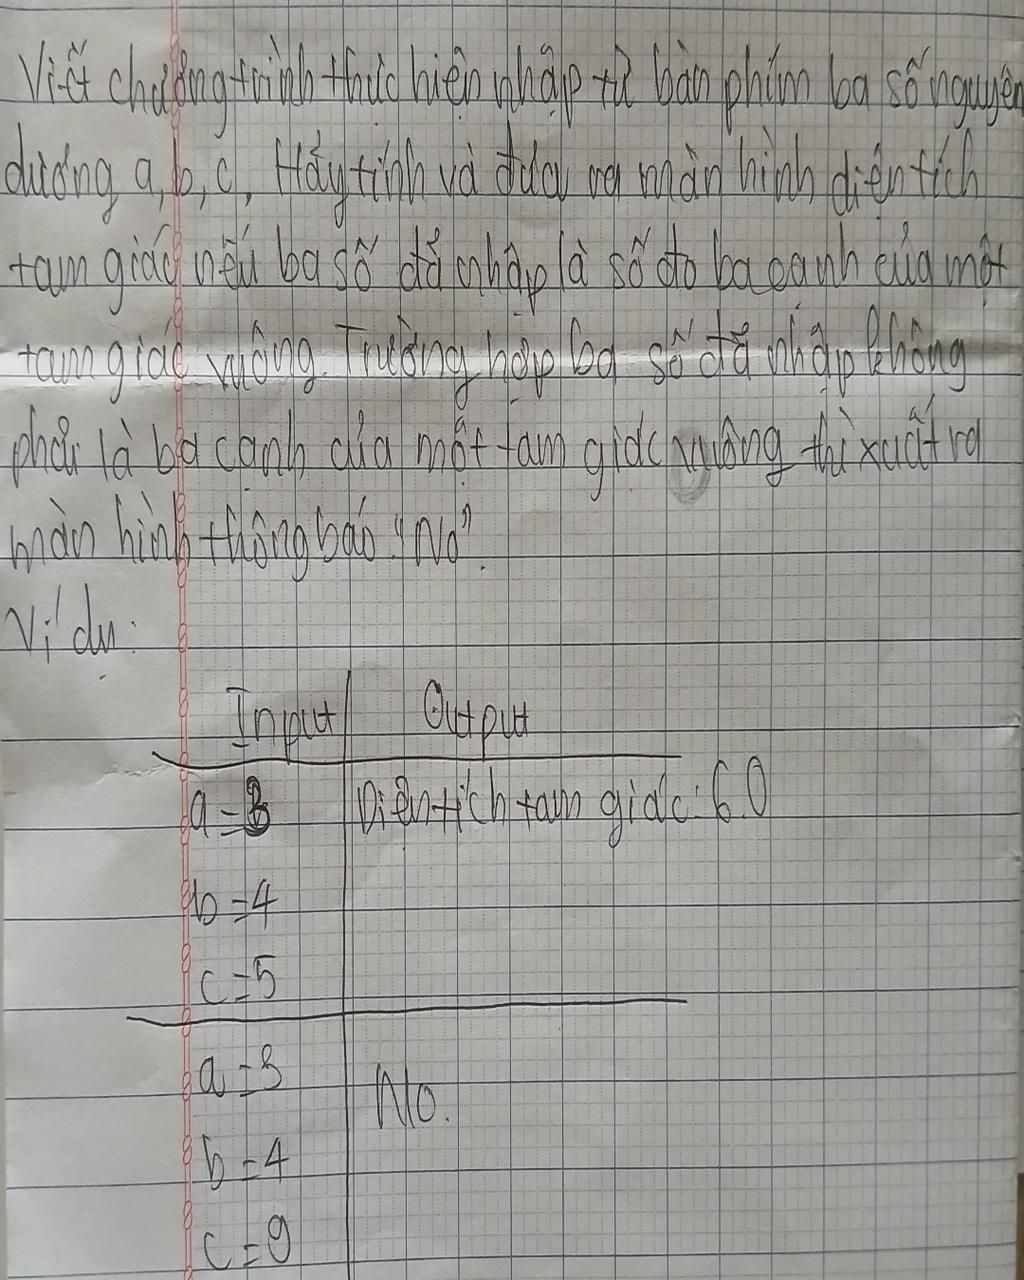 Viết chương trình thực hiện nhập từ bàn phím ba số nguyên
dương a, b, c, Hãy tính và đưa ra màn hình diện tích
tam giác nếu ba số đã nhập là số đo ba cạnh của một
tam giác vuông. Trường hợp ba số đã nhập không
phải là ba cạnh của một tam giác vuông thì xuất ra
màn hình thông báo "No".
Ví dụ:
Input Output
a=3 Diện tích tam giác: 6.0
b=4
c=5
a=3
No.
b=4
c=9